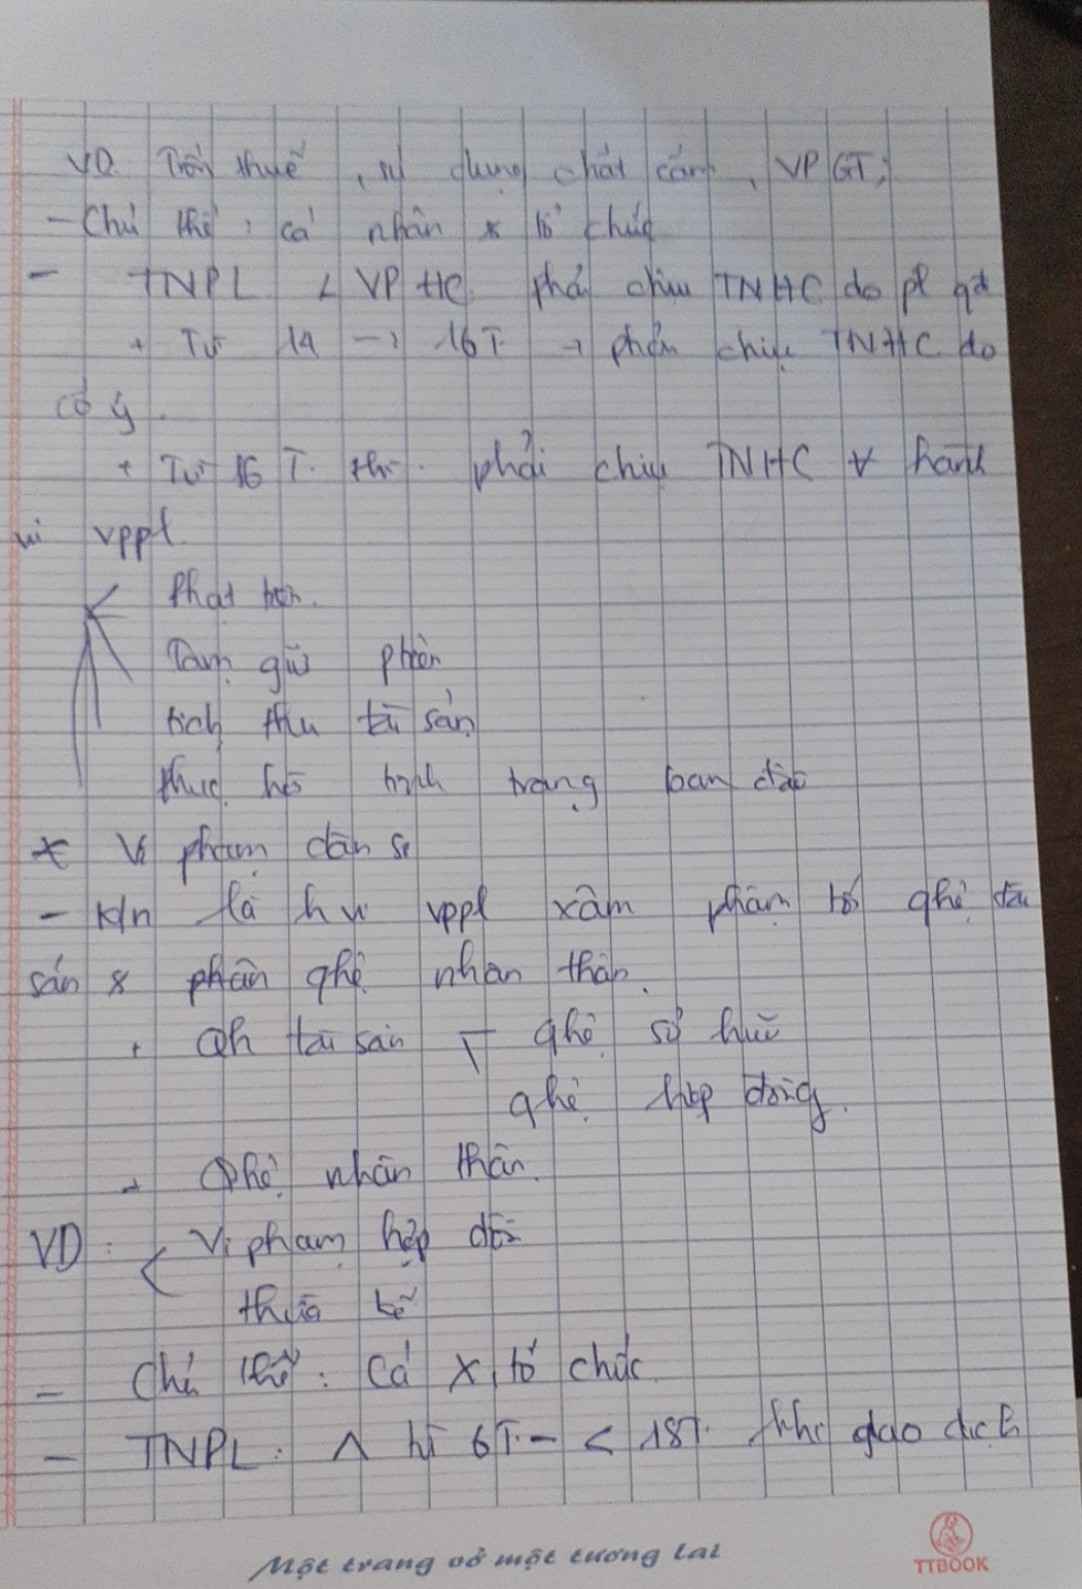 VD Trốn thuế, sử dụng chất cấm, VPGT;
- Chủ thể : cá nhân x tổ chức
- TNPL < VPHC phải chịu TNHC do pl qđ
+ Từ 14 -> 16T -> phải chịu TNHC do
cố ý.
+ Từ 16 T. thì phải chịu TNHC ∀ hành
vi vppl.
Phạt tiền.
Tạm giữ
tịch thu tài sản
trạng ban đầu
* Vi phạm dân sự
- K/n là h vi vppl xâm phạm tới qhệ tài
sản x qhệ nhân thân.
+ Qh tài sản qhệ sở hữu
qhệ hợp đồng.
+ Qhệ nhân thân.
VD: < Vi phạm hợp đồng
thừa kế
- Chủ thể: Cá x, tổ chức.
- TNPL: 6T - < 18T. khi giao dịch
Một trang vở một tương lai
TTBOOK